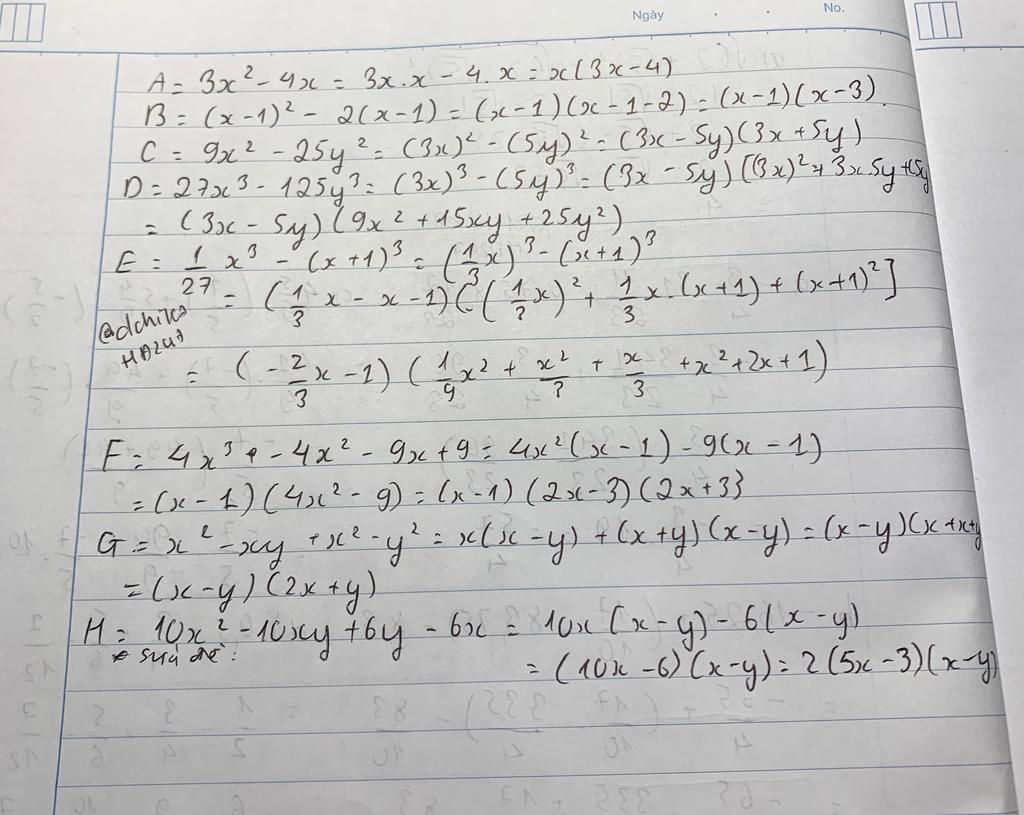 Ngày No.
A = 3x² - 4x = 3x.x - 4.x = x(3x-4)
B = (x-1)² - 2(x-1) = (x-1)(x-1-2) = (x-1)(x-3).
C = 9x² - 25y² = (3x)² - (5y)² = (3x - 5y)(3x + 5y)
D = 27x³ - 125y³ = (3x)³ - (5y)³ = (3x - 5y)[(3x)² + 3x.5y + (5y
= (3x - 5y)(9x² + 15xy + 25y²)
E = 1/27 x³ - (x+1)³ = (1/3 x)³ - (x+1)³
= (1/3 x - x - 1)[(1/3 x)² + 1/3 x.(x+1) + (x+1)²]
= (-2/3 x - 1)(1/9 x² + x²/3 + x/3 + x² + 2x + 1)
F = 4x³ - 4x² - 9x + 9 = 4x²(x - 1) - 9(x - 1)
= (x - 1)(4x² - 9) = (x-1)(2x-3)(2x+3)
G = x² - xy + x² - y² = x(x - y) + (x+y)(x-y) = (x-y)(x+x+y
= (x-y)(2x+y)
H = 10x² - 10xy + 6y - 6x = 10x(x-y) - 6(x-y)
* sửa đề:
= (10x - 6)(x-y) = 2(5x-3)(x-y)